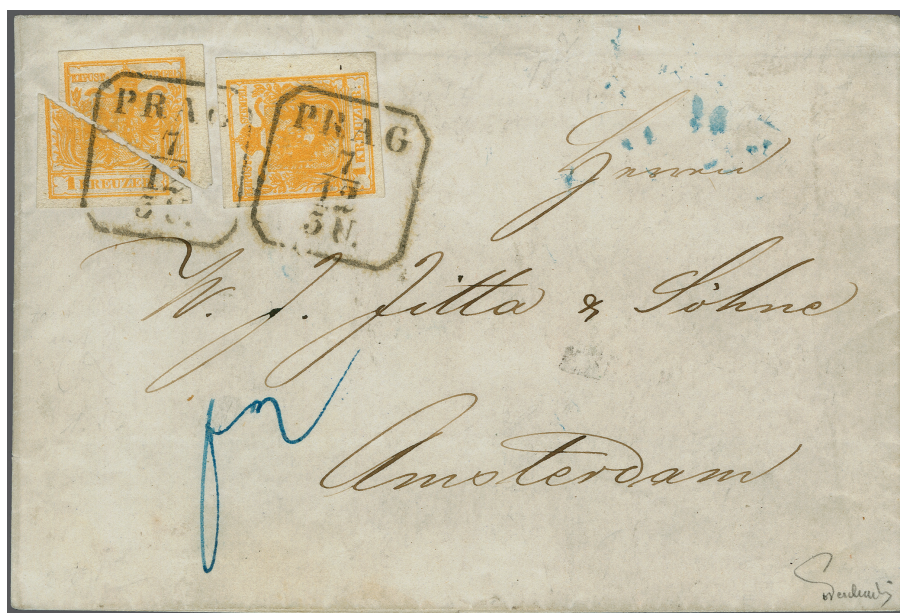 PRAG
7
12
5 U.
1 KREUZER
PRAG
7
12
5 U.
KREUZER
Herrn
W. J. Jitta & Söhne
Amsterdam